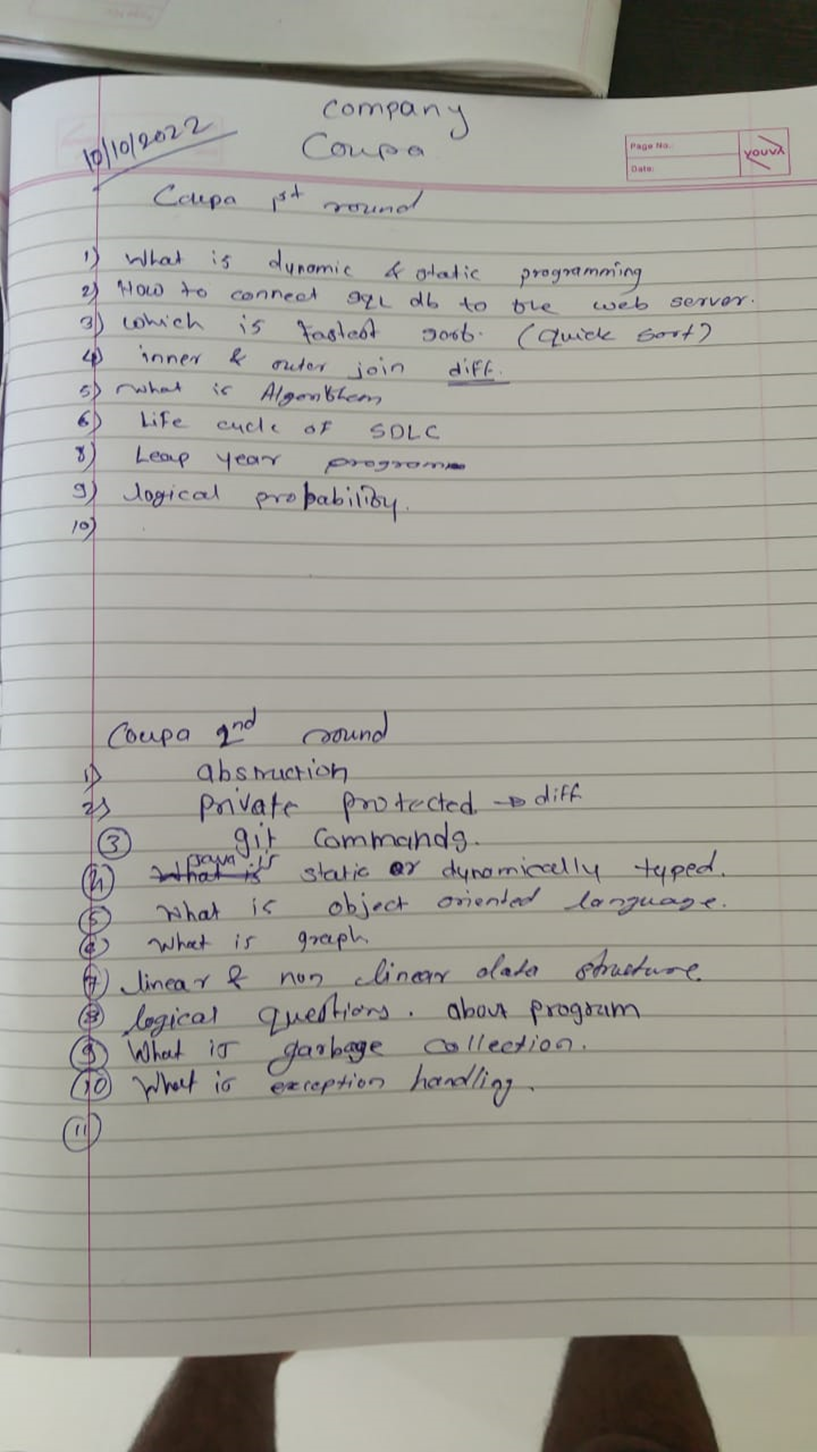 Company
10/10/2022
Coupa
Page No.:
Date:
YOUVA
Coupa 1st round
1) What is dynamic & static programming
2) How to connect sql db to the web server.
3) which is fastest sort. (Quick Sort)
4) inner & outer join diff.
5) what is Algorithm
6) Life cycle of SDLC
8) Leap year program
9) logical probability.
10)
Coupa 2nd round
1) abstruction
2) private protected → diff
3 git commands.
java is
4 What is static or dynamically typed.
5 What is object oriented language.
6 What is graph
7 linear & non linear data structure.
8 logical questions. about program
9 What is garbage collection.
10 What is exception handling.
11